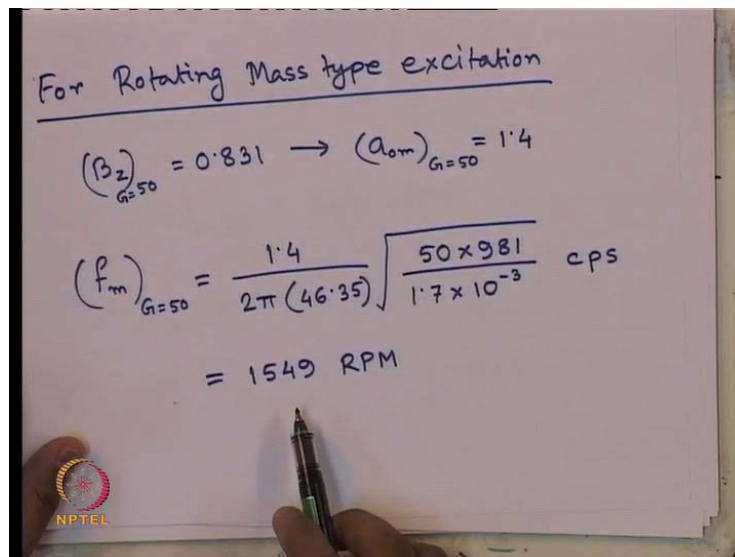 For Rotating Mass type excitation
(B_z)_{G=50} = 0.831 → (a_{om})_{G=50} = 1.4
(f_m)_{G=50} = \frac{1.4}{2π(46.35)} \sqrt{\frac{50 × 981}{1.7 × 10^{-3}}} cps
= 1549 RPM
NPTEL